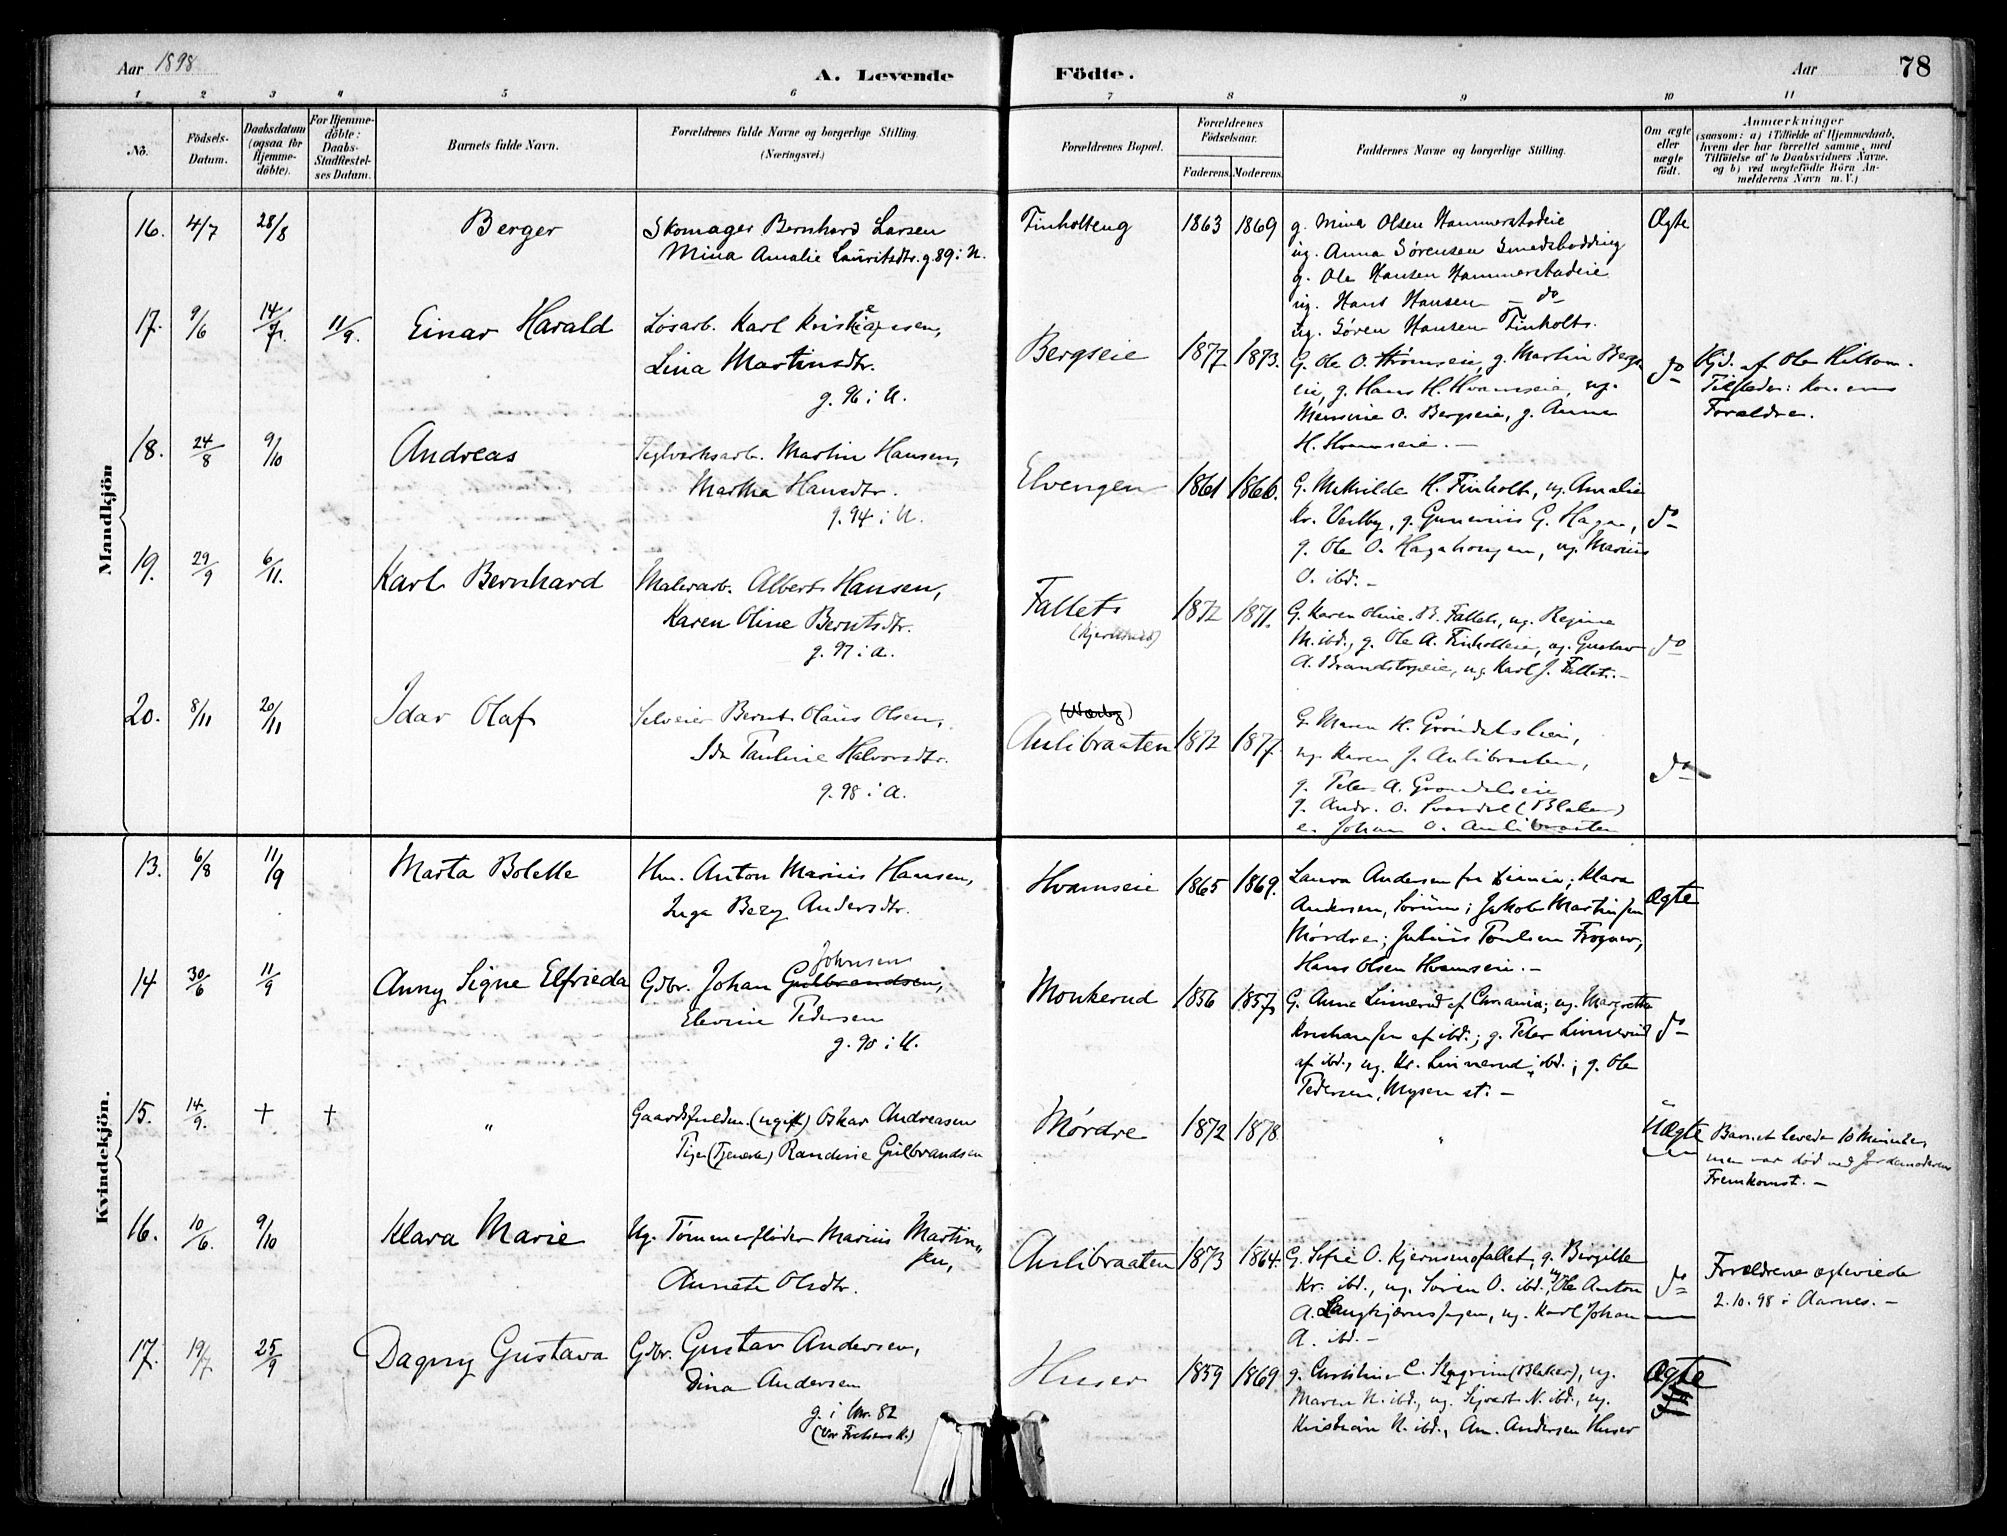 Aar 1898
A. Levende
Födte.
Aar
78
1 2 3 4 5 6 7 8 9 10 11
No.
Födsels-
Datum.
Daabsdatum
(ogsaa for
Hjemme-
döbte).
For Hjemme-
döbte:
Daabs-
Stadfæstel-
ses Datum.
Barnets fulde Navn.
Forældrenes fulde Navne og borgerlige Stilling.
(Næringsvei.)
Forældrenes Bopæl.
Forældrenes
Födselsaar.
Faderens. Moderens.
Faddernes Navne og borgerlige Stilling.
Om ægte
eller
uægte
födt.
Anmærkninger
(saasom: a) i Tilfælde af Hjemmedaab,
hvem der har forrettet samme, med
Tilföielse af to Daabsvidners Navne.
og b) ved uægtefödte Börn An-
melderens Navn m. V.)
Mandkjön
16. 4/7 28/8 Berger
Skomager Bernhard Larsen
Mina Amalie Lauritsdtr. g. 89 i U.
Tinholteng 1863 1869
g. Mina Olsen Hammerstadeie
ug. Anna Sørensen Smedsbodding
g. Ole Hansen Hammerstadeie
ug. Hans Hansen — do
ug. Søren Hansen Finholts.
Ægte
17. 9/6 14/7. 11/9. Einar Harald
Løsarb. Karl Kristiansen,
Lina Martinsdtr.
g. 96 i U.
Bergseie 1877 1873.
G. Ole O. Strømseie, g. Martin Bergs-
eie, g. Hans H. Hvamseie, ug.
O. Bergseie, g. Anne
H. Hvamseie. —
do
Hjd. af Ole
Forældre.
18. 24/8 9/10 Andreas
Teglverksarb. Martin Hansen,
Martha Hansdtr.
g. 94 i U.
Elvengen 1861 1866.
G. Mathilde H. Finholt, ug. Amalie
Kr. Varlby, g. Gunerius G. Haga,
g. Ole O. Hagahougen, ug. Marius
O. ibd. —
do
19. 29/9 6/11. Karl Bernhard
Malerarb. Albert Hansen,
Karen Oline Berntsdtr.
g. 97 i U.
Fallet 1872 1871.
G. Karen Oline B. Fallet, ug. Regine
M. ibd., g. Ole A. Finholteie, ug. Gustav
A. Brandstorpeie, ug. Karl J. Fallet. —
do
20. 8/11 20/11 Idar Olaf
Selveier Bernt Olaus Olsen,
Ida Pauline Halvorsdtr.
g. 98 i U.
Aulibraaten 1872 1877.
G. Maren H. Grøndalseie,
ug. Karen J. Aulibraaten,
g. Peter A. Grøndalseie
g. Andr. O. Svardal (Blaker)
e. Johan O. Aulibraaten
do
Kvindekjön.
13. 6/8 11/9 Marta Bolette
Hm. Anton Marius Hansen,
Inga Berg Andersdtr.
Hvamseie 1865 1869.
Laura Andersen fra ; Klara
Andersen, Sørum; Jakob Martinsen
Mørdre; Julius Paulsen Frogner,
Hans Olsen Hvamseie. —
ægte
14 30/6 11/9 Anny Signe Elfrieda
Johnsen
Gdbr. Johan Gulbrandsen,
Elevine Pedersen
g. 90 i U.
Monkerud 1856 1857
G. Anna Linnerud af Chrania; ug. Margrethe
Kristiansen af ibd.; g. Peter Linnerud
af ibd., ug. Kr. Linnerud, ibd.; g. Ole
Pedersen, Mysen st. —
do
15. 14/9. † † „
Gaardsfuldm. (ugift) Oskar Andreasen
Pige (Tjeneste) Randine Gulbrandsen
Mørdre 1872 1878 „
Uægte
Barnet levede 10 Minuter,
men var død ved Jordmoderens
Fremkomst. —
16. 10/6. 9/10 Klara Marie
Ug. Tømmerfløder Marius Martin-
sen,
Annete Olsdtr.
Aulibraaten 1873 1864.
G. Sofie O. Kjernsmofallet, g. Birgitte
Kr. ibd., ug. Søren O. ibd., ug. Ole Anton
A. Langkjernshagen, ug. Karl Johan
A. ibd. —
do
Forældrene ægteviede
2.10.98 i Aarnes. —
17. 19/7 25/9 Dagny Gustava
Gdbr. Gustav Andersen,
Dina Andersen
g. i Chr. 82
(Vor Frelsers K.)
Huser 1859 1869
g. Christine C. (Blaker), ug.
Maren N. ibd., ug. Sigvart N. ibd., ug.
Kristian N. ibd., An. Andersen Huser
Ægte